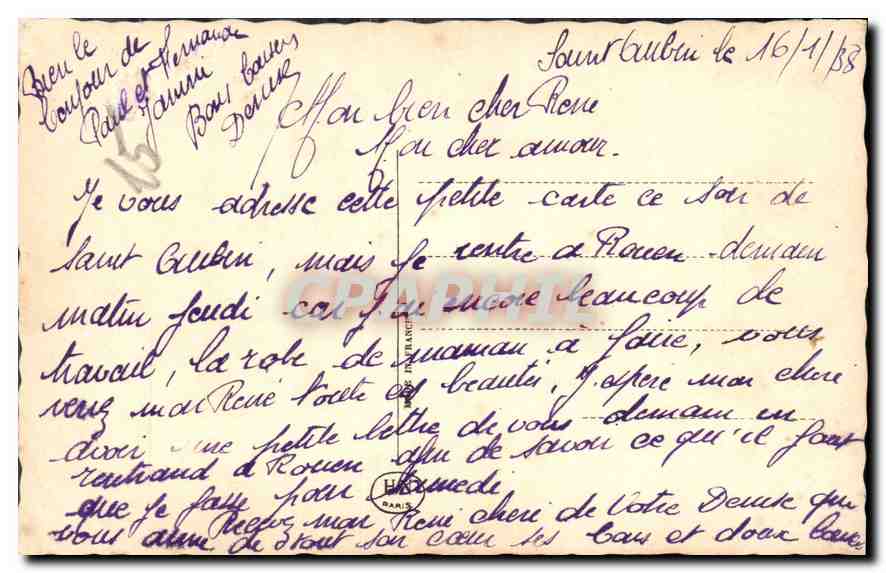 Saint Aubin le 16/1/38
Bien le
bonjour de
Paul et Fernande
Janine
Bons baisers
Denise
15
Mon bien cher René
Mon cher amour.
Je vous adresse cette petite carte ce soir de
Saint Aubin, mais je rentre a Rouen demain
matin jeudi car j'ai encore beaucoup de
travail, la robe de maman a faire, vous
mon René toute ces beautés, J'espère mon chéri
avoir une petite lettre de vous demain en
rentrand a Rouen afin de savoir ce qu'il faut
que je fasse pour samedi
Recevez mon René chéri de Votre Denise qui
vous aime de tout son cœur ses bons et doux
CPAPHIL
MADE IN FRANCE
PARIS